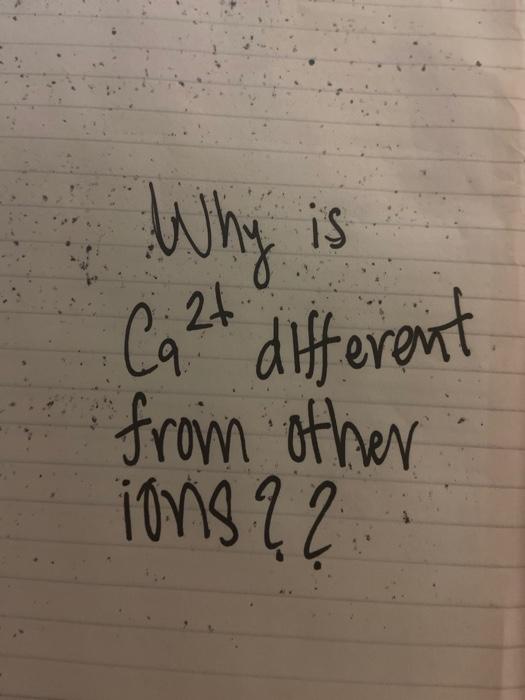 Why is
Ca²⁺ different
from other
ions??